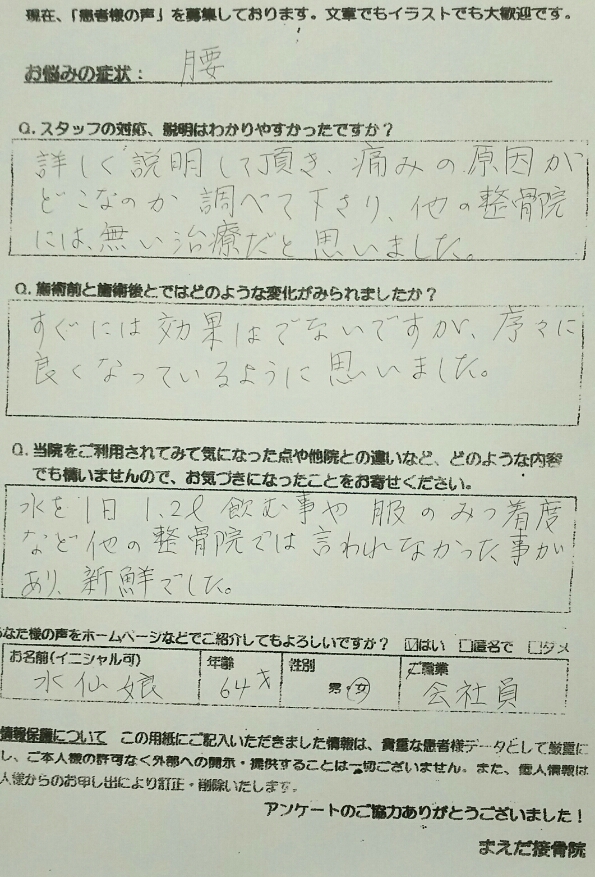 現在、「患者様の声」を募集しております。文章でもイラストでも大歓迎です。
お悩みの症状： 腰
Q. スタッフの対応、説明はわかりやすかったですか？
詳しく説明して頂き、痛みの原因が
どこなのか調べて下さり、他の整骨院
には、無い治療だと思いました。
Q. 施術前と施術後とではどのような変化がみられましたか？
すぐには効果はでないですが、序々に
良くなっているように思いました。
Q. 当院をご利用されてみて気になった点や他院との違いなど、どのような内容
でも構いませんので、お気づきになったことをお寄せください。
水を1日1.2ℓ飲む事や服のみつ着度
など他の整骨院では言われなかった事が
あり、新鮮でした。
あなた様の声をホームページなどでご紹介してもよろしいですか？ ☑はい □匿名で □ダメ
お名前(イニシャル可) 年齢 性別 ご職業
水仙娘 64才 男・女 会社員
情報保護について この用紙にご記入いただきました情報は、貴重な患者様データとして厳重に
し、ご本人様の許可なく外部への開示・提供することは一切ございません。また、個人情報は
人様からのお申し出により訂正・削除いたします。
アンケートのご協力ありがとうございました！
まえだ接骨院